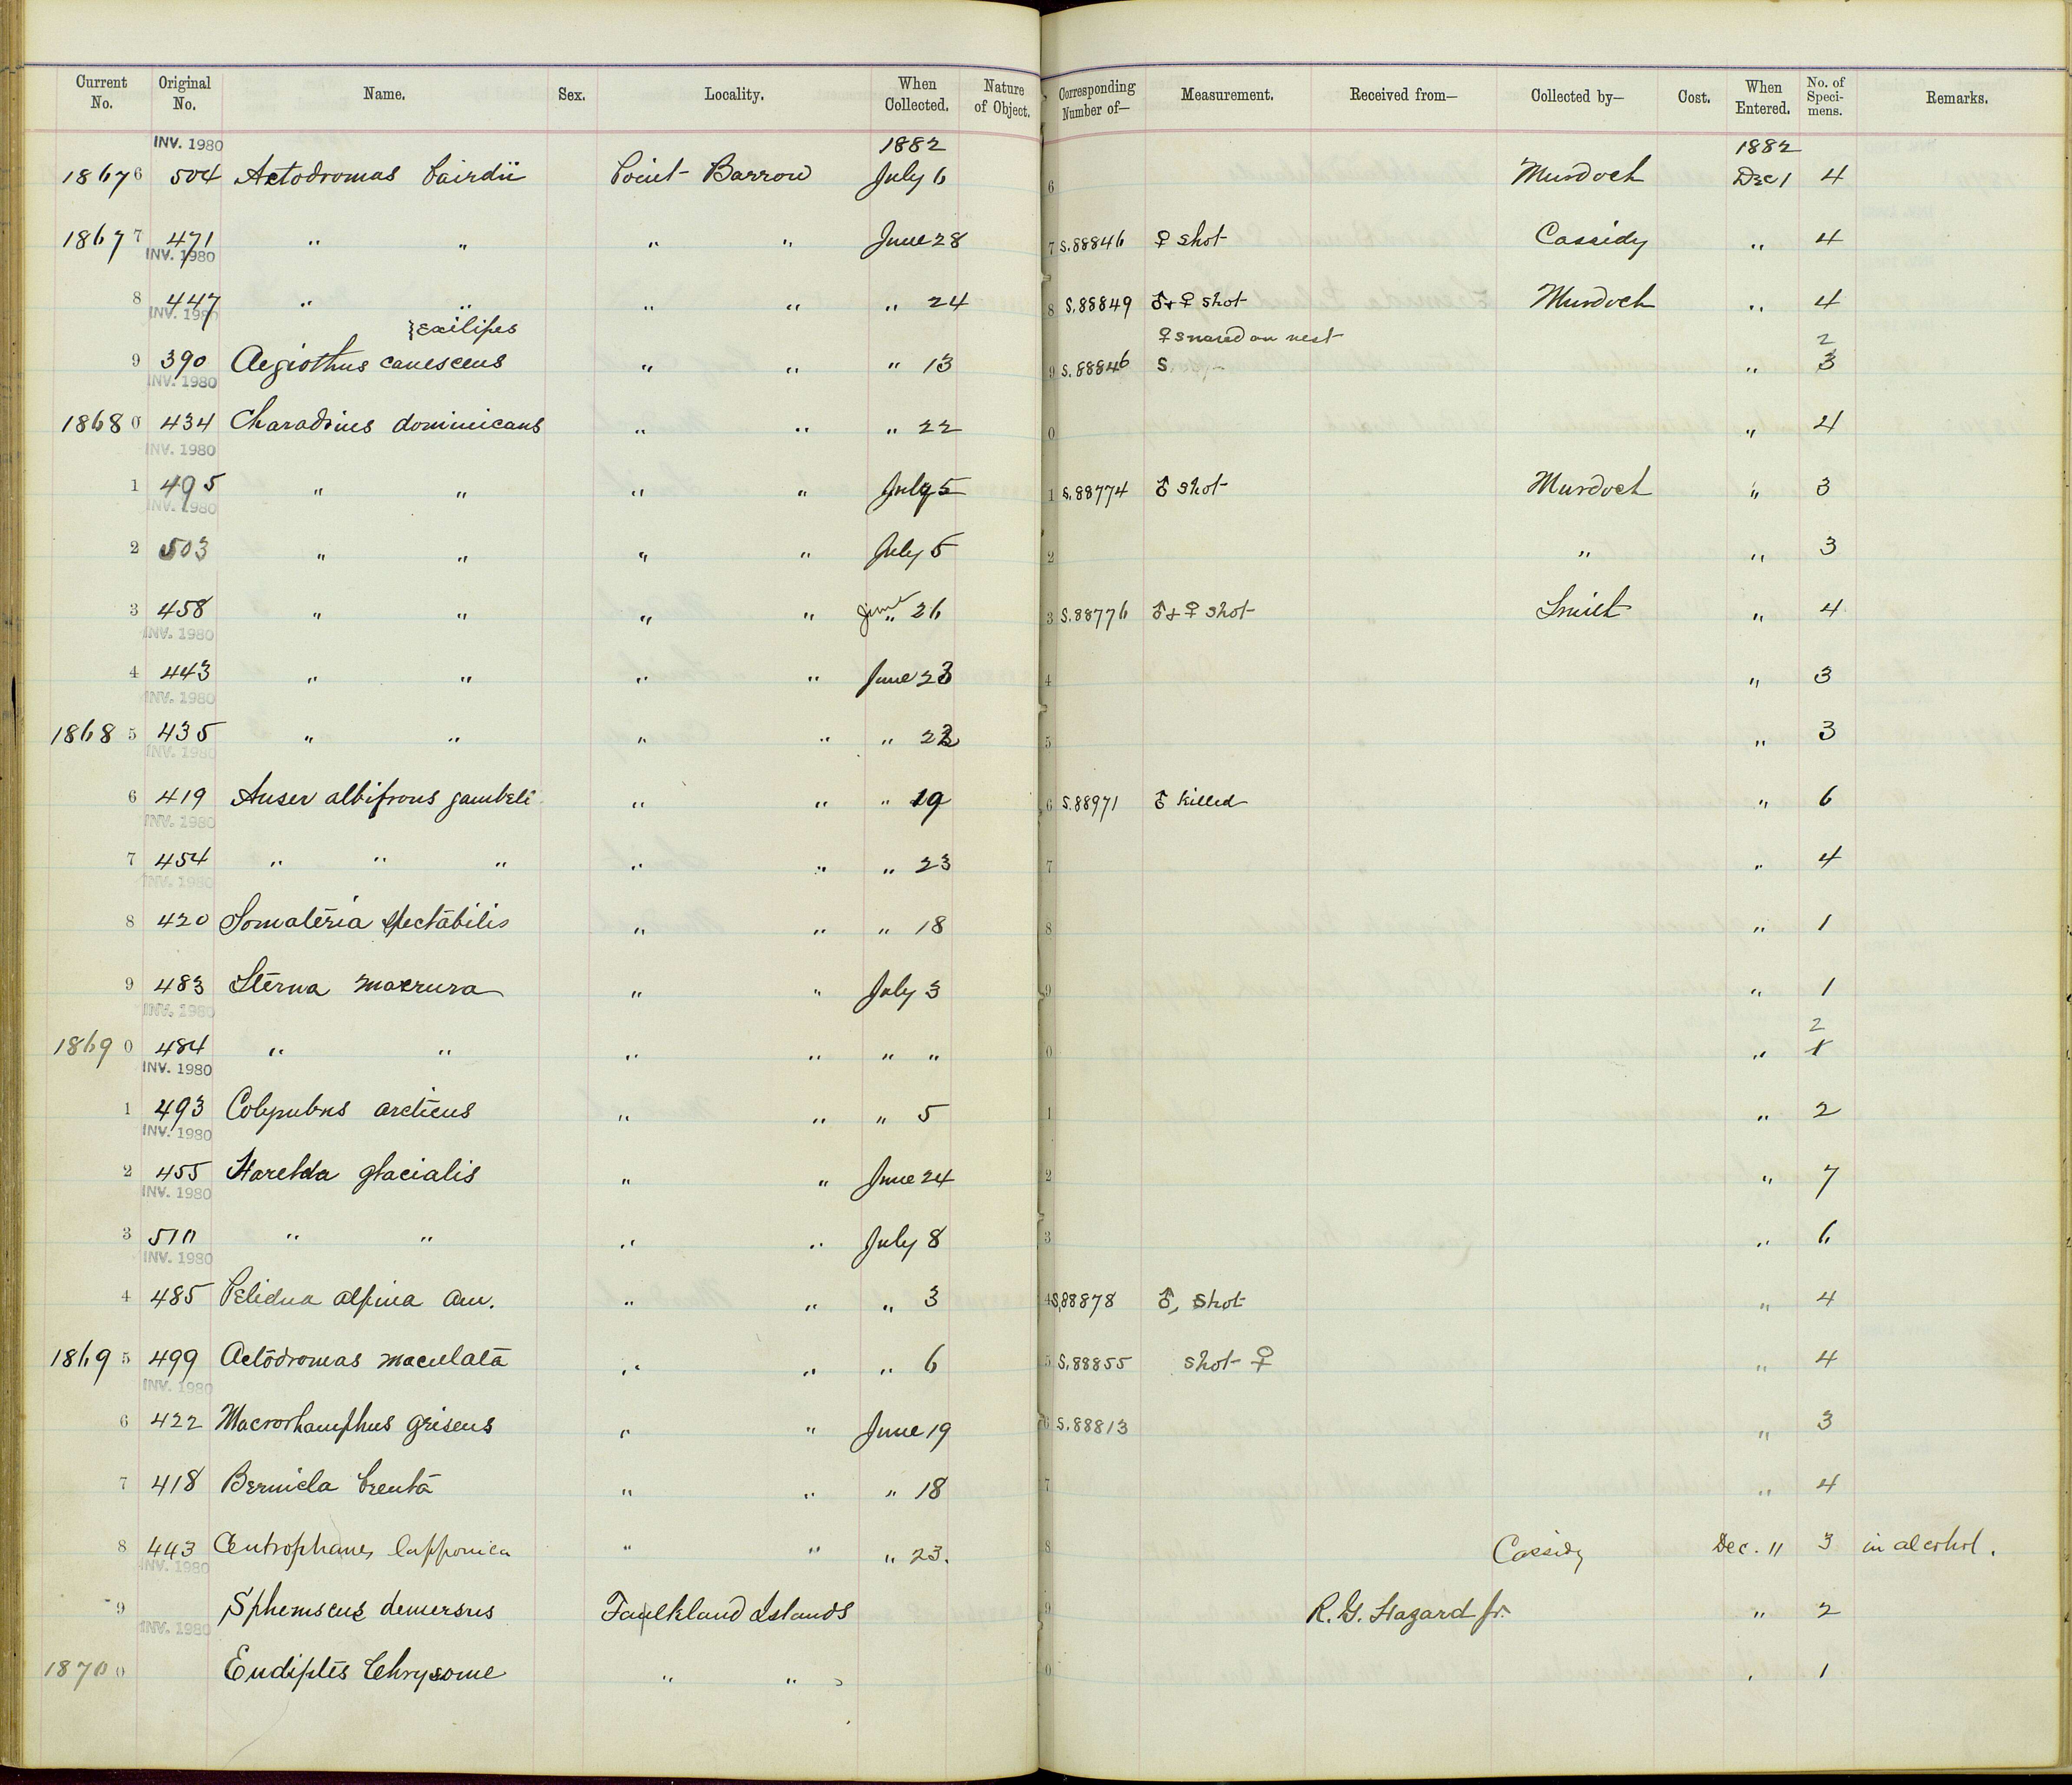 Current No. Original No. Name. Sex. Locality. When Collected. Nature of Object. Corresponding Number of— Measurement. Received from— Collected by— Cost. When Entered. No. of Specimens. Remarks.
INV. 1980 1882 1882
18676 504 Actodromas bairdii Point Barrow July 6 6 Murdoch Dec 1 4
18677 471 " " " " June 28 7 S.88846 ♀ shot Cassidy " 4
INV. 1980
8 447 " " " " " 24 8 S.88849 ♂+♀ shot Murdoch " 4
INV. 1980
exilipes ♀ snared on nest 2
9 390 Aegiothus canescens " " " 13 9 S.88846 S " 3
INV. 1980
18680 434 Charadrius dominicans " " " 22 0 " 4
INV. 1980
1 495 " " " " July 5 1 S.88774 ♂ shot Murdoch " 3
INV. 1980
2 503 " " " " July 5 2 " " 3
3 458 " " " " June " 26 3 S.88776 ♂+♀ shot Smith " 4
INV. 1980
4 443 " " " " June 23 4 " 3
INV. 1980
18685 435 " " " " " 22 5 " 3
INV. 1980
6 419 Anser albifrons gambeli " " " 19 6 S.88971 ♂ killed " 6
INV. 1980
7 454 " " " " " " 23 7 " 4
INV. 1980
8 420 Somateria spectabilis " " " 18 8 " 1
9 483 Sterna macrura " " July 3 9 " 1
INV. 1980
2
18690 484 " " " " " " 0 " 1
INV. 1980
1 493 Colymbus arcticus " " " 5 1 " 2
INV. 1980
2 455 Harelda glacialis " " June 24 2 " 7
INV. 1980
3 510 " " " " July 8 3 " 6
INV. 1980
4 485 Pelidna alpina am. " " " 3 4 S.88878 ♂, shot " 4
18695 499 Actodromas maculata " " " 6 5 S.88855 shot ♀ " 4
INV. 1980
6 422 Macrorhamphus griseus " " June 19 6 S.88813 " 3
7 418 Bernicla brenta " " " 18 7 " 4
8 443 Centrophanes lapponica " " " 23. 8 Cassidy Dec. 11 3 in alcohol.
INV. 1980
9 Spheniscus demersus Faulkland Islands 9 R. G. Hazard Jr. " 2
INV. 1980
18700 Eudiptes Chrysome " " 0 " 1